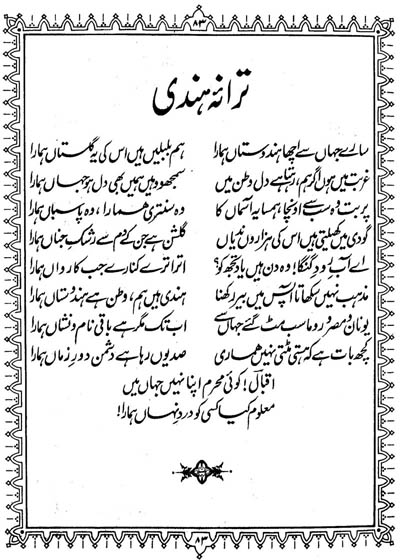 ۸۳
ترانۂ ہندی
سارے جہاں سے اچھا ہندوستاں ہمارا ہم بلبلیں ہیں اس کی یہ گلستاں ہمارا
غربت میں ہوں اگر ہم، رہتا ہے دل وطن میں سمجھو وہیں ہمیں بھی دل ہو جہاں ہمارا
پربت وہ سب سے اونچا ہمسایہ آسماں کا وہ سنتری ہمارا، وہ پاسباں ہمارا
گودی میں کھیلتی ہیں اس کی ہزاروں ندیاں گلشن ہے جن کے دم سے رشکِ جناں ہمارا
اے آبِ رودِ گنگا! وہ دن ہیں یاد تجھ کو؟ اترا ترے کنارے جب کارواں ہمارا
مذہب نہیں سکھاتا آپس میں بیر رکھنا ہندی ہیں ہم، وطن ہے ہندوستاں ہمارا
یونان و مصر و روما سب مٹ گئے جہاں سے اب تک مگر ہے باقی نام و نشاں ہمارا
کچھ بات ہے کہ ہستی مٹتی نہیں ہماری صدیوں رہا ہے دشمن دورِ زماں ہمارا
اقبالؔ! کوئی محرم اپنا نہیں جہاں میں
معلوم کیا کسی کو دردِ نہاں ہمارا!
۸۳